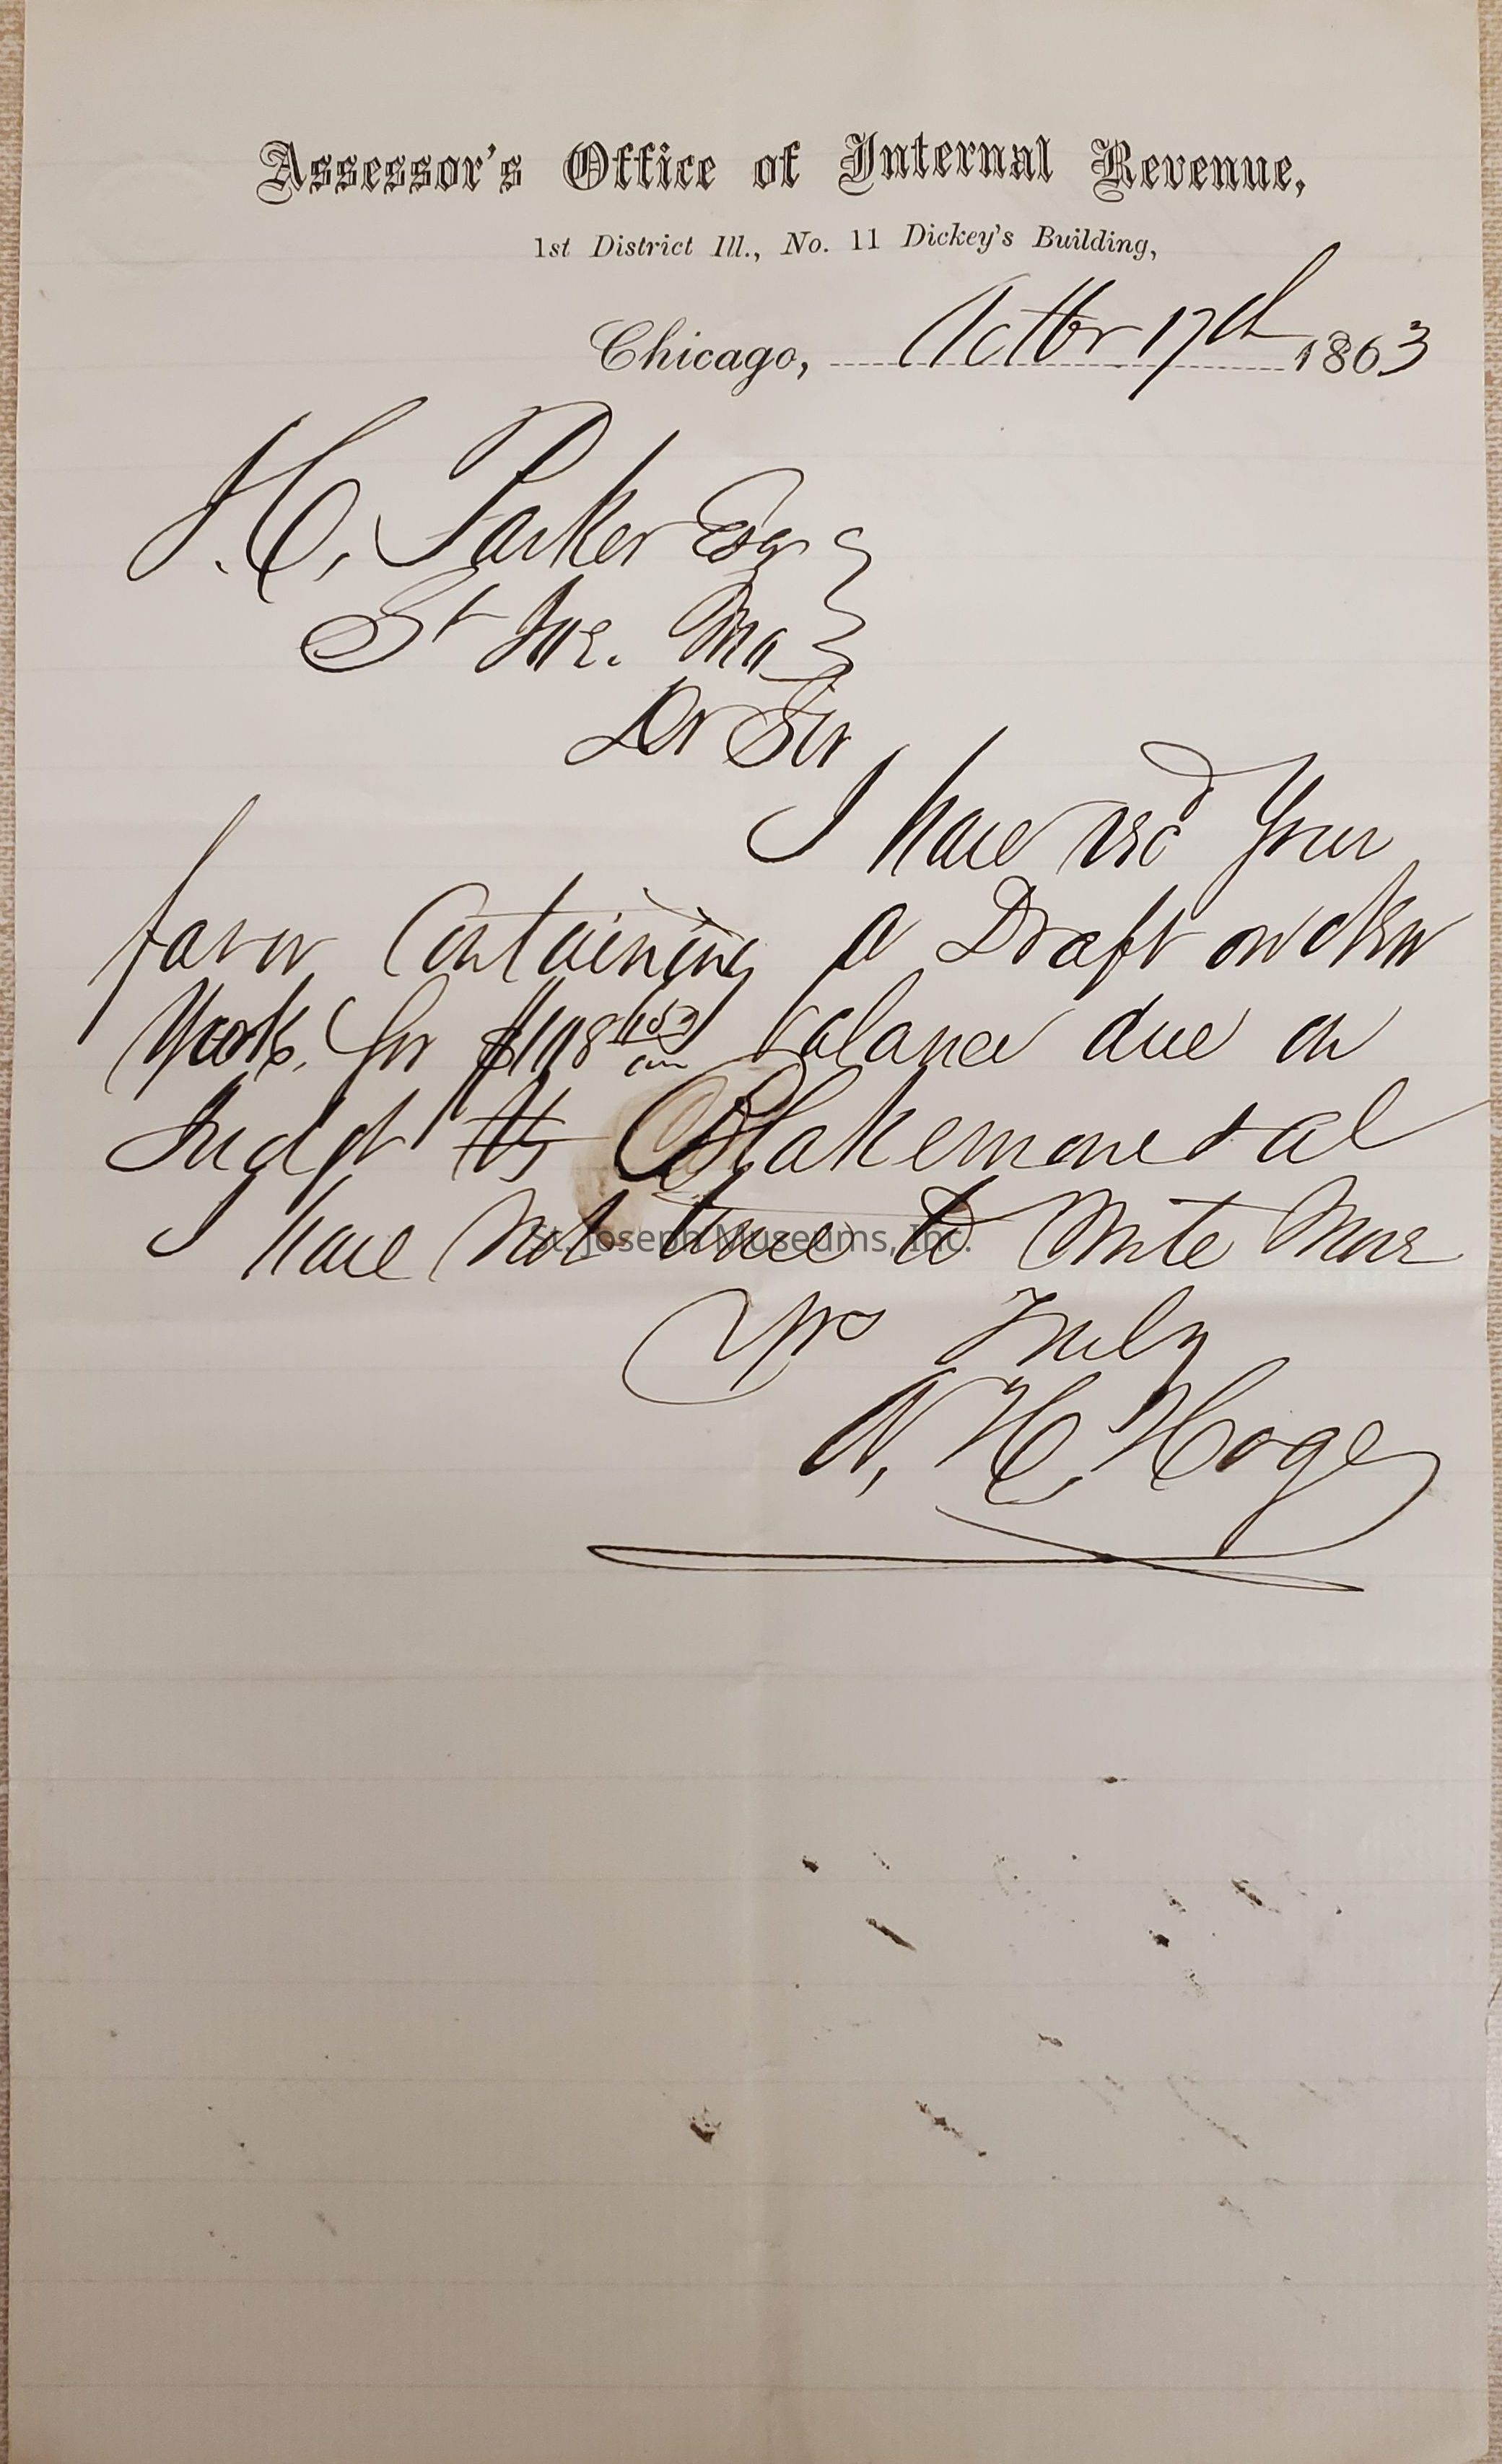 Assessor's Office of Internal Revenue,
1st District Ill., No. 11 Dickey's Building,
Chicago, Octbr 17th 1863
H. Parker Esqr
St Joe. Mo
Dr Sir
I have recd your
favor Containing a Draft on New
York. for balance due on
Judgt vs Blakemore et al
I have not time to write more
St. Joseph Museums, Inc.
Yrs Truly
A. H. Hoge